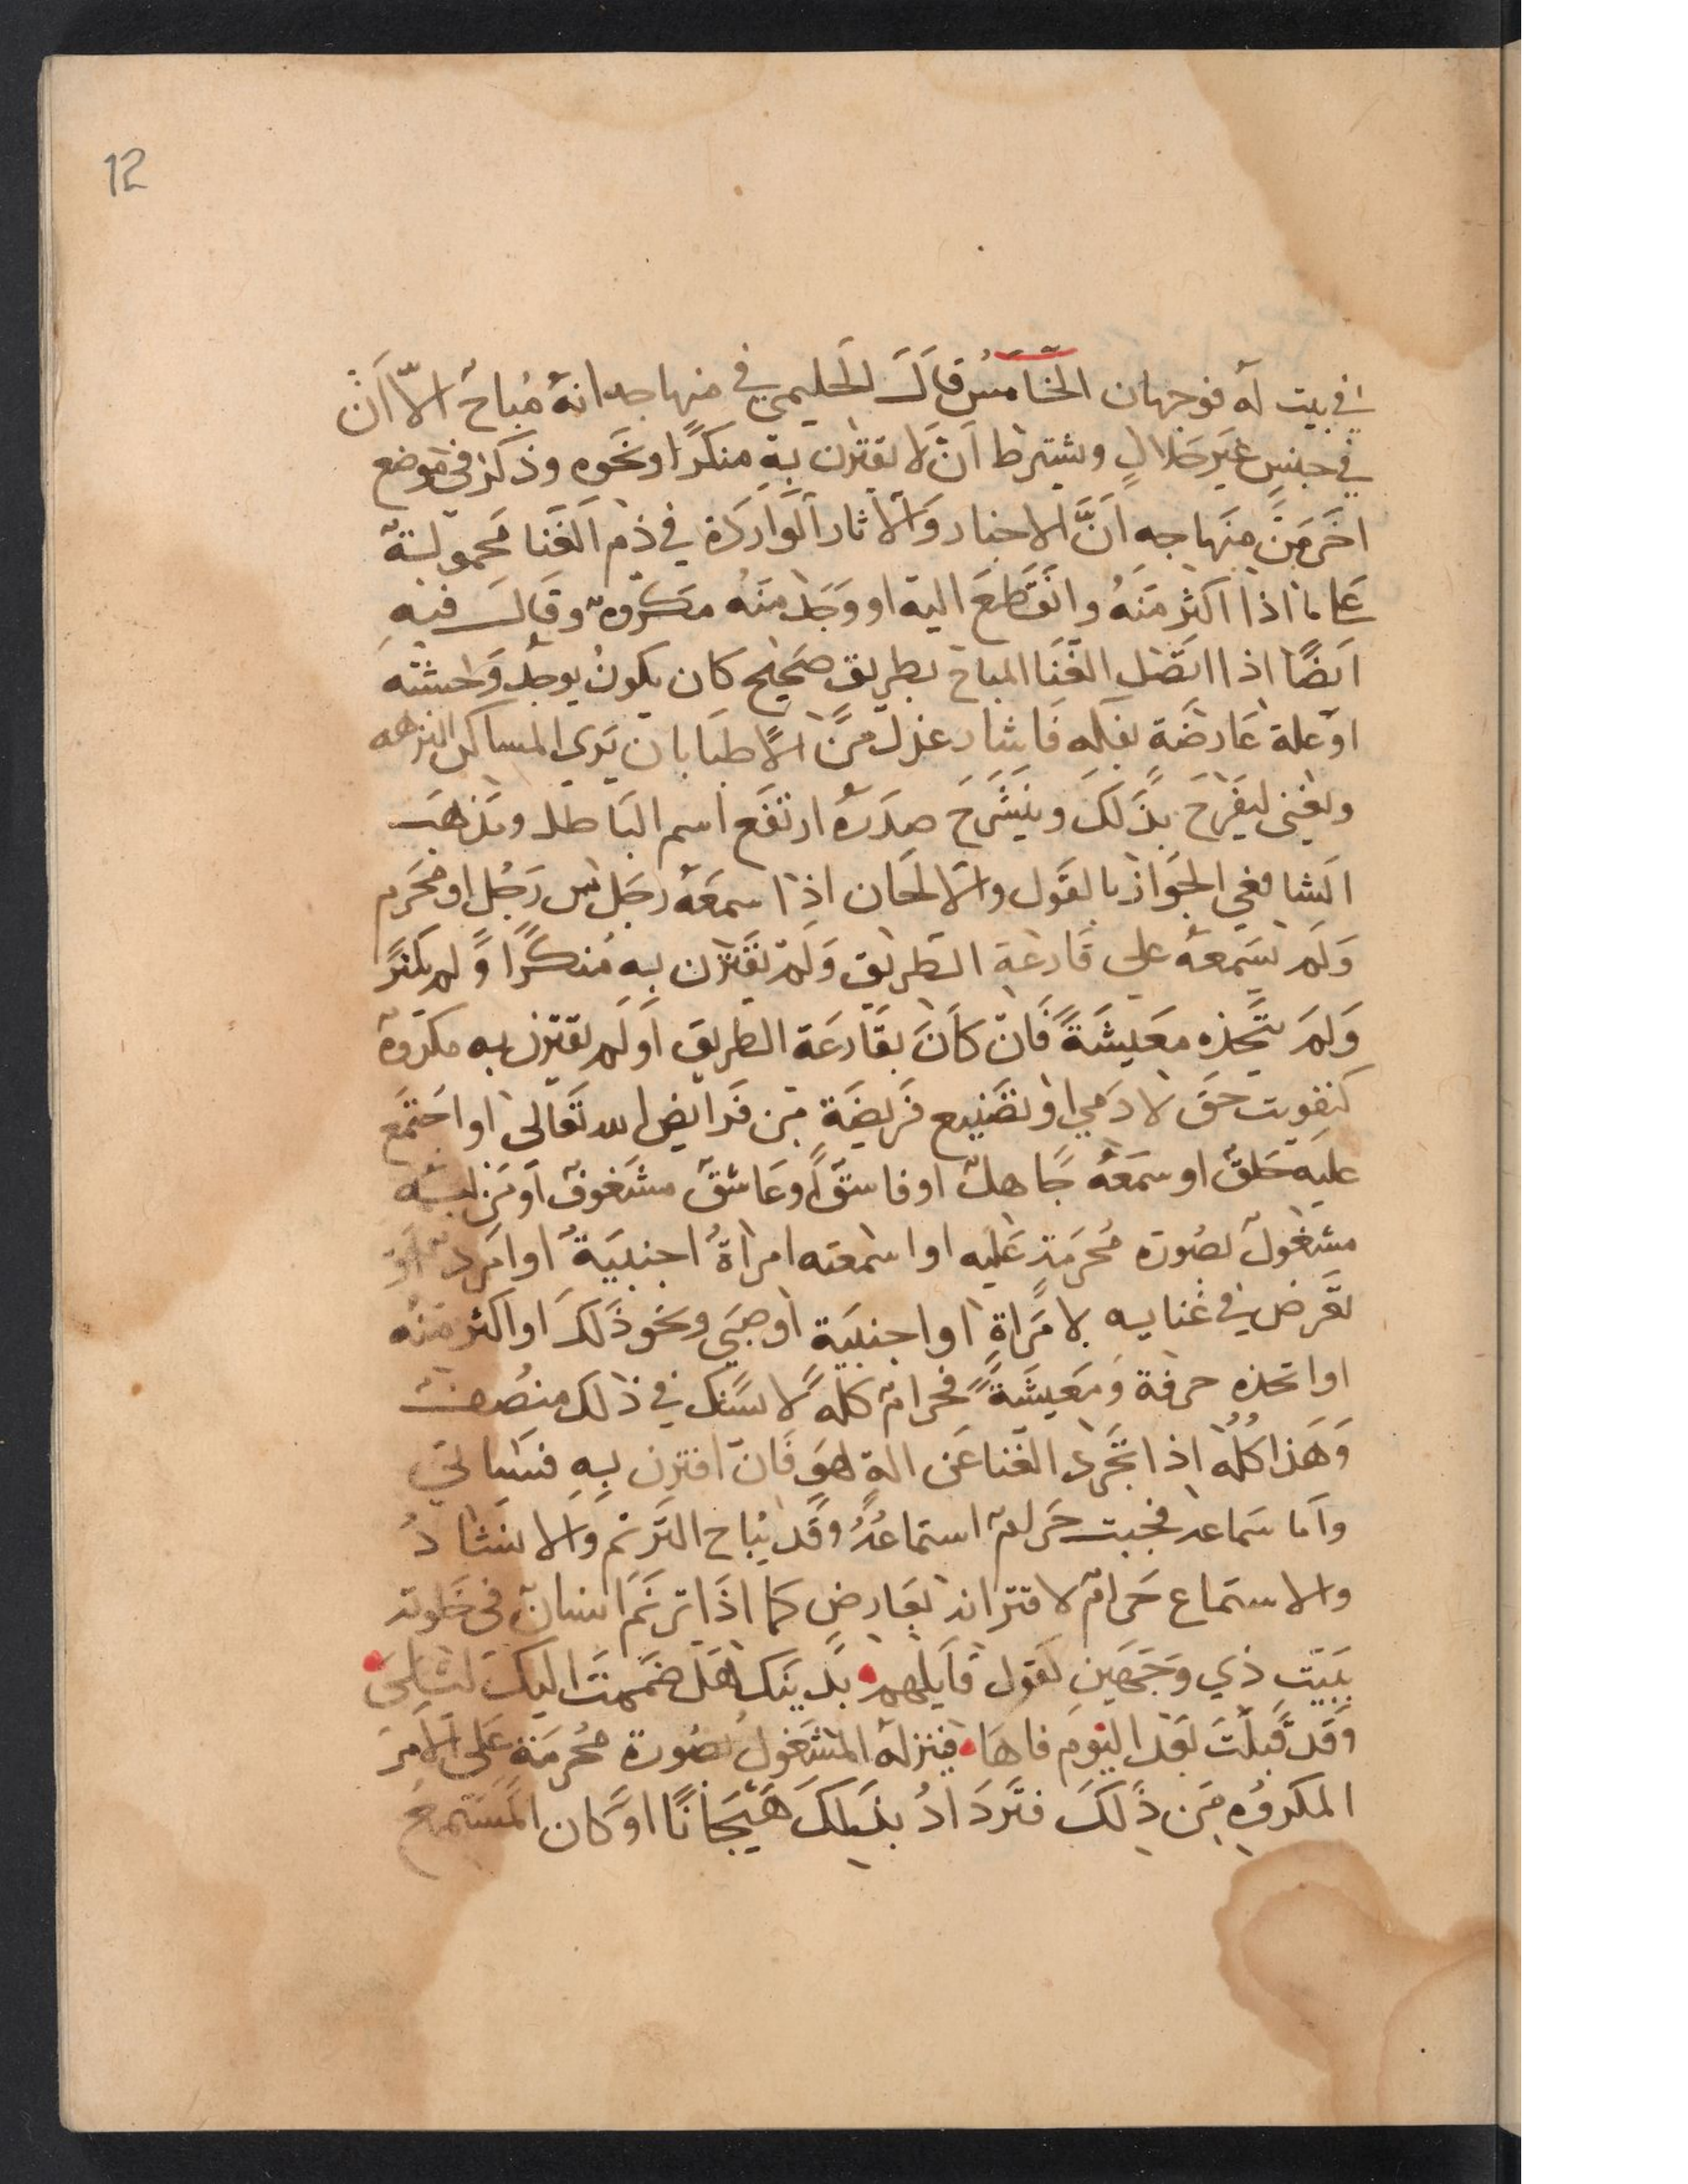 12
في بيت له فوجهان الخامس قال الحليمي في منهاجه انه مباح الا ان
في جنس غير حلال ويشترط ان لا يقترن به منكرا ونحوه وذكر في موضع
اخر من منهاجه ان الاخبار والاثار الواردة في ذم الغنا محمولة
على ما اذا اكثر منه وانقطع اليه او وجد منه مكروه وقال فيه
ايضا اذا اتصل الغنا المباح بطريق صحيح كان يكون يوجد وحشته
او علة عارضة لفكره فاشار عدل من الاطبا بان يرى المساكن النزهه
ويغني ليفرح بذلك وينشرح صدره ارتفع اسم الباطل ومذهب
الشافعي الجواز بالقول والالحان اذا سمعه رجل من رجل او محرم
ولم يسمعه على قارعة الطريق ولم يقترن به منكرا ولم يكثر
ولم يتخذه معيشة فان كان بقارعة الطريق او لم يقترن به مكروه
كتفويت حق لادمي او تضييع فريضة من فرايض الله تعالى او اجتمع
عليه خلق او سمعه جاهل او فاسق او عاشق مشغوف او من قلبه
مشغول بصورة محرمة عليه او اسمعته امراة اجنبية او امرد او
تعرض في غنايه لامراة او اجنبية او صبي ونحو ذلك او اكثر منه
او اتخذه حرفة ومعيشة فحرام كله لا يشك في ذلك منصف
وهذا كله اذا تجرد الغنا عن الة لهو فان اقترن به فسياتي
واما سماعه فحيث حرام استماعه وقد يباح الترنم والانشاد
والاستماع حرام لاقترانه بعارض كما اذا ترنم انسان في خلوته
ببيت ذي وجهين كقول قايلهم بدينك هل ضممت اليك ليلى
وقد قبلت بعد اليوم فاها فينزله المشغول بصورة محرمة على الامر
المكروه من ذلك فتزداد بذلك هيجانا او كان المستمع